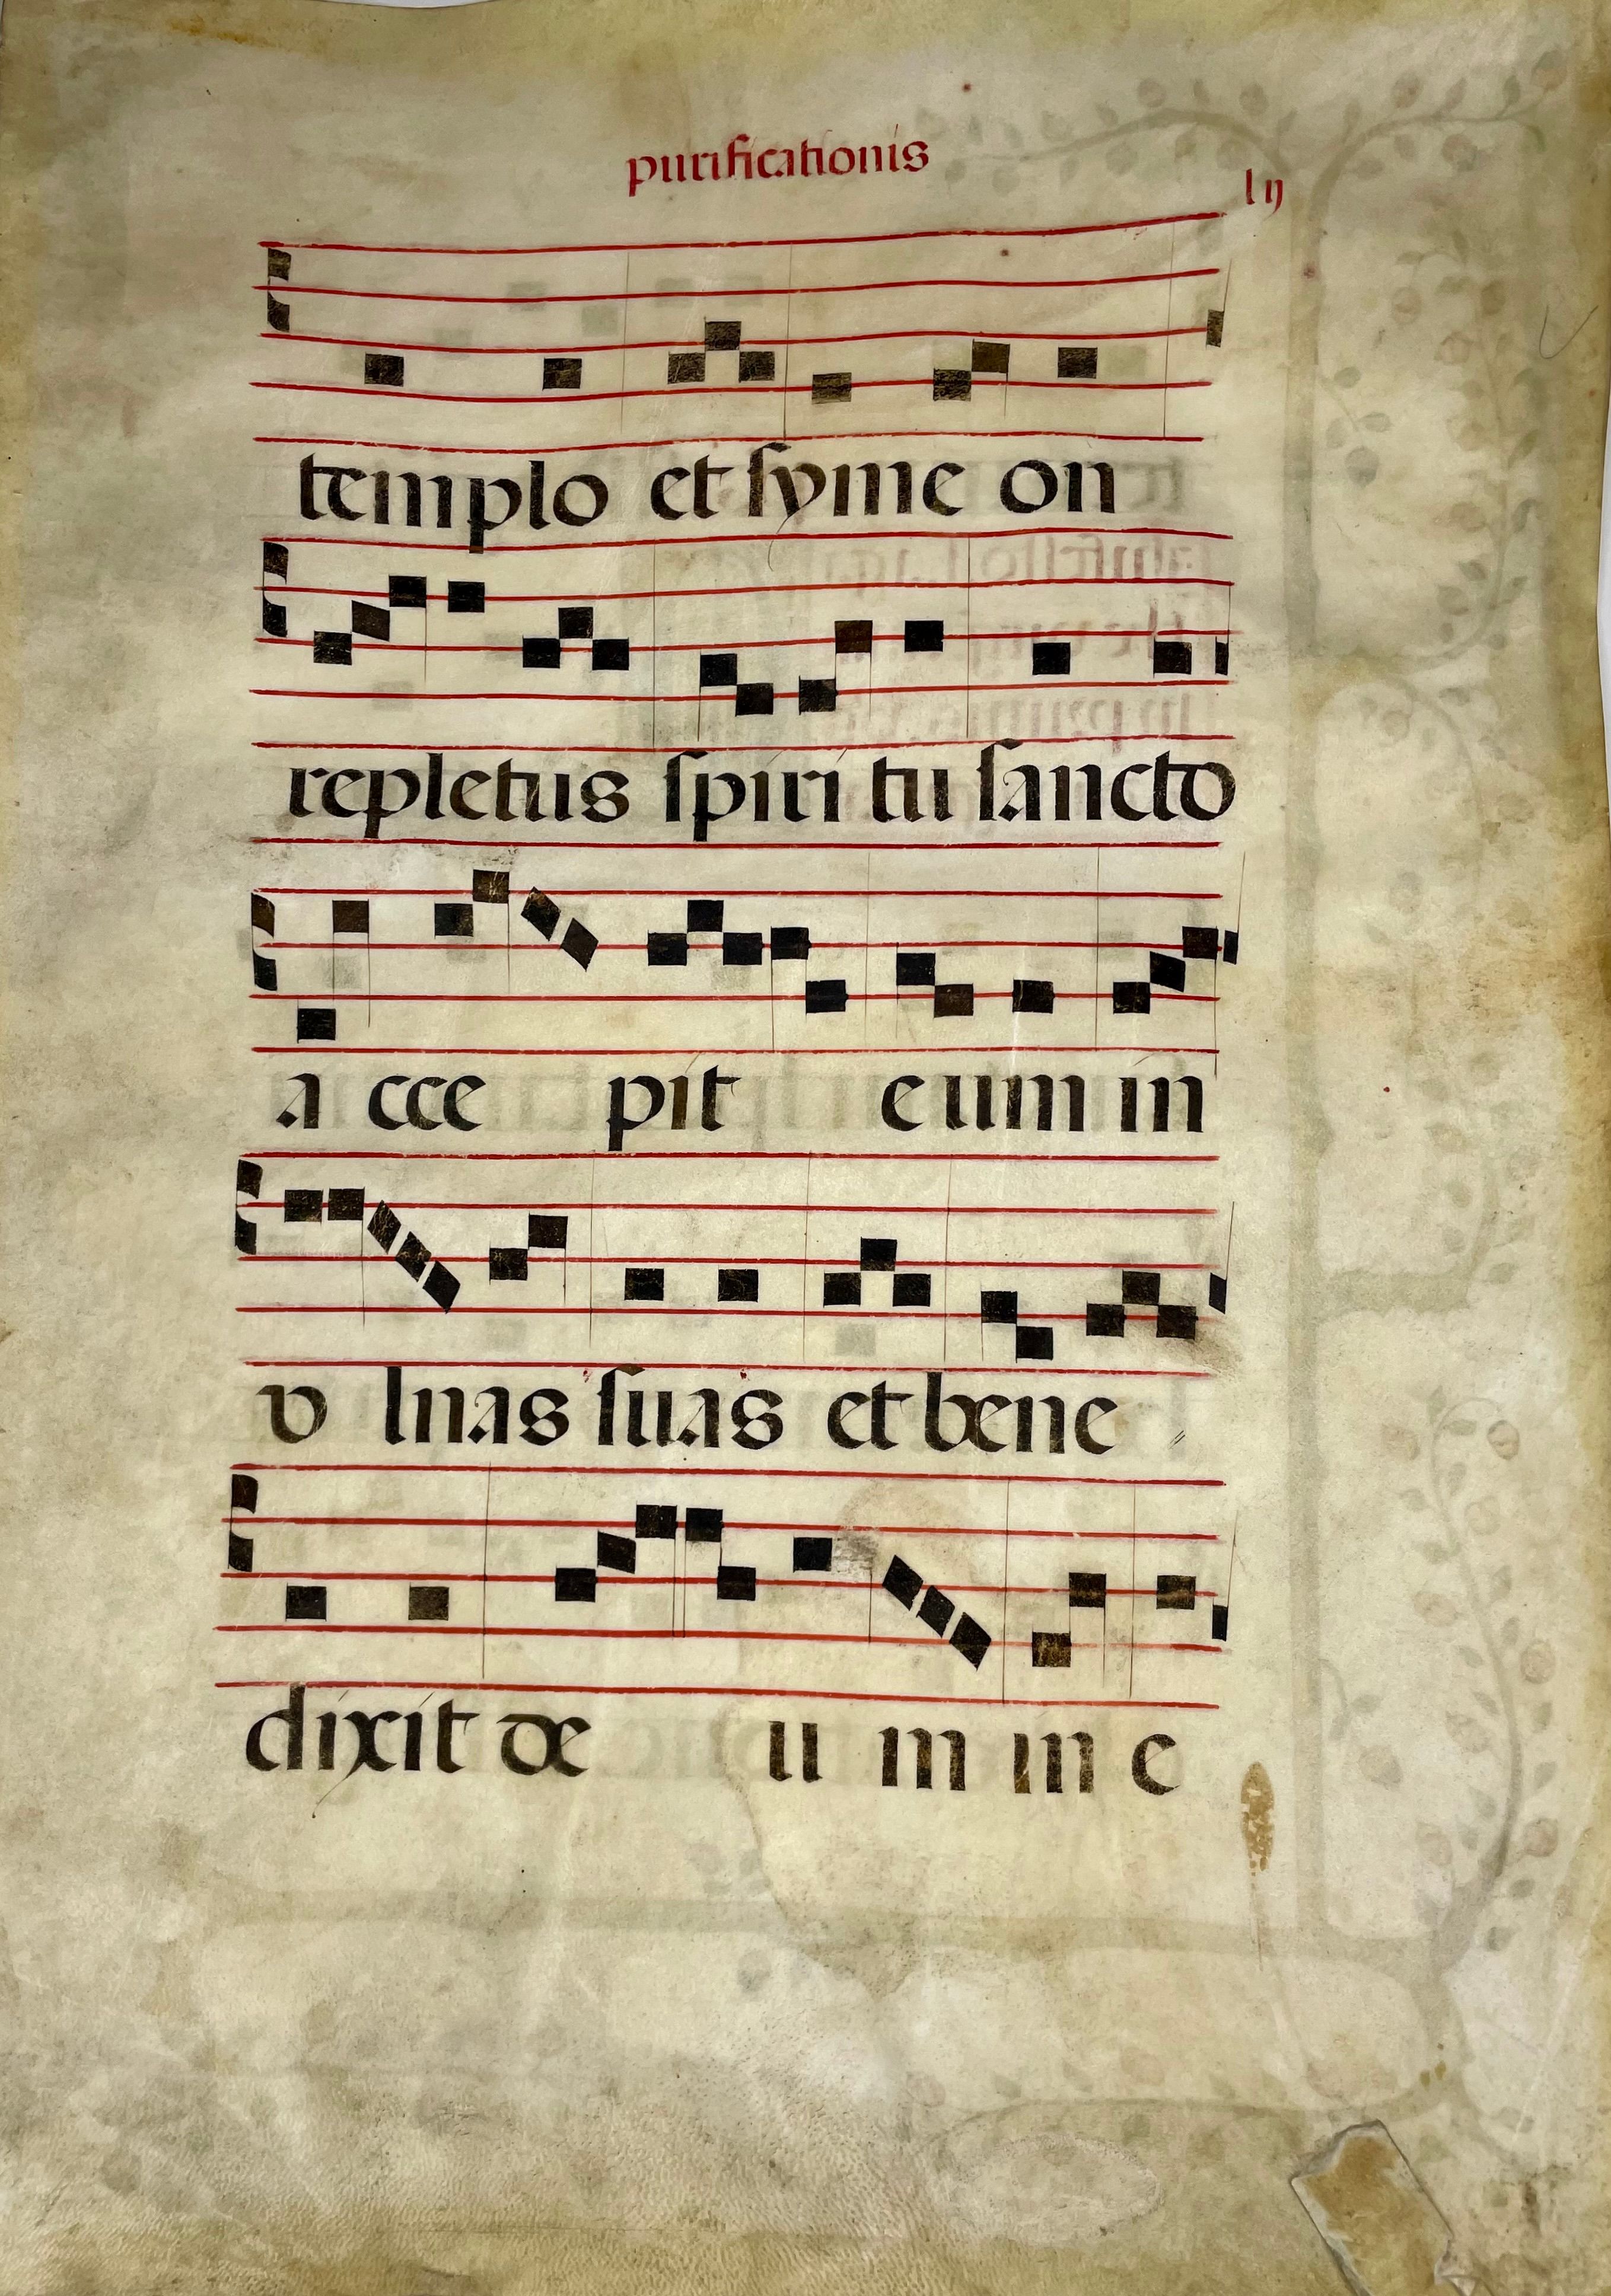 purificationis
lij
templo et ſymeon
repletus ſpiri tu ſancto
a cce pit eum in
v lnas ſuas et bene
dixit de u m in e